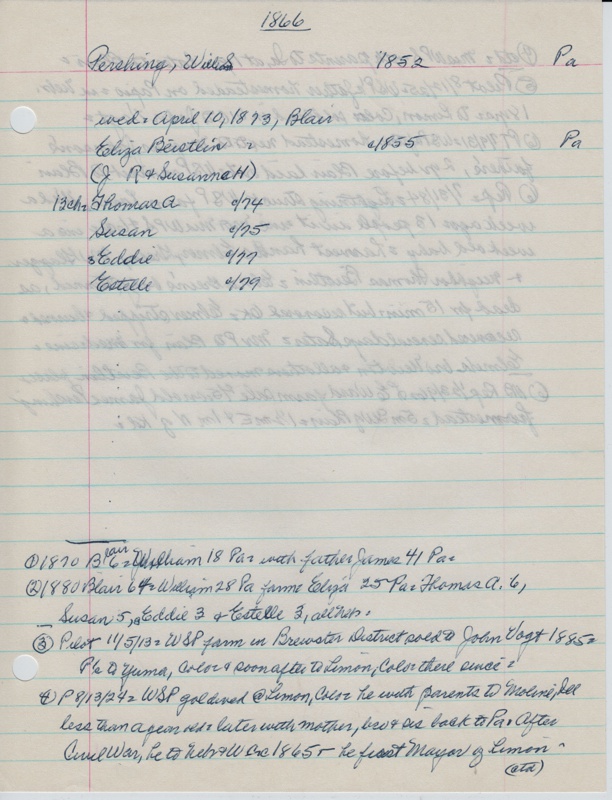 1866
Pershing, Will S 1852 Pa
wed = April 10, 1873, Blair
Eliza Beistlin = c/1855 Pa
(J R & Susanna H)
13ch = Thomas A c/74
Susan c/75
Eddie c/77
Estelle c/79
① 1870 Blair = William 18 Pa = with father James 41 Pa =
② 1880 Blair 64 = William 28 Pa farms Eliza 25 Pa = Thomas A. 6,
Susan 5, Eddie 3 & Estelle 3, all Neb =
③ Pilot 11/5/13 = WSP farm in Brewster District sold to John Vogt 1885 =
P/c to Yuma, Colo = & soon after to Limon, Colo = there since =
④ P 8/13/24 = WSP gol dwed @ Limon, Colo = he with parents to Moline, Ill
less than a year old = later with mother, bro & sis back to Pa = After
Civil War, he to Neb & W Co 1865 - he first Mayor of Limon -
(ctd)